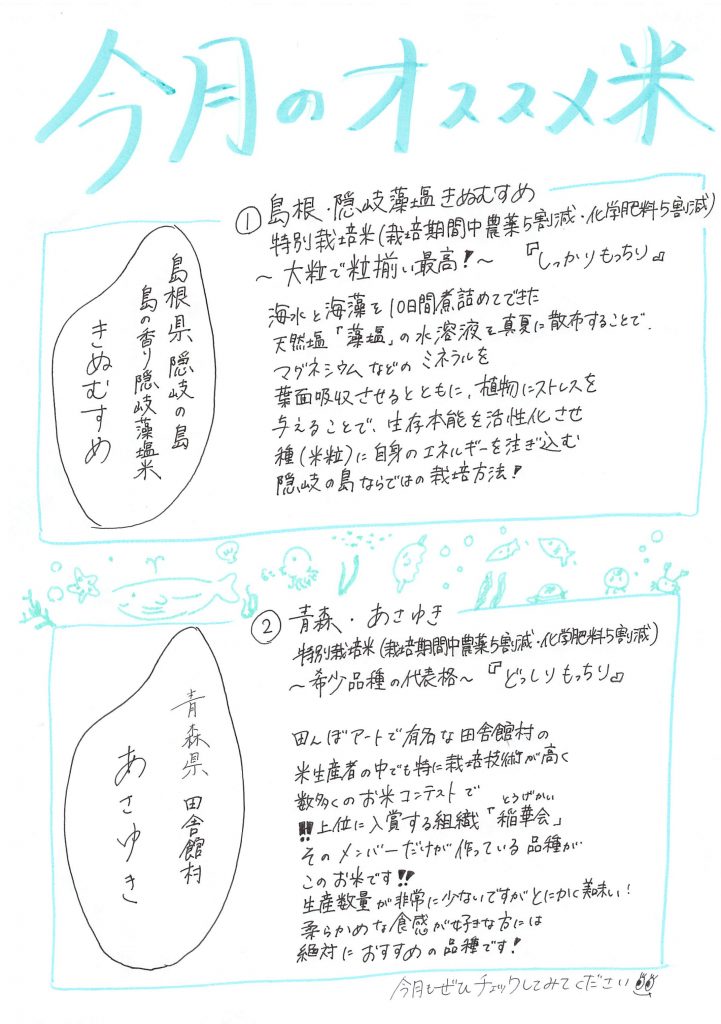 今月のオススメ米
① 島根・隠岐藻塩きぬむすめ
特別栽培米(栽培期間中農薬5割減・化学肥料5割減)
～大粒で粒揃い最高!～ 『しっかりもっちり』
海水と海藻を10日間煮詰めてできた
天然塩「藻塩」の水溶液を真夏に散布することで、
マグネシウムなどのミネラルを
葉面吸収させるとともに、植物にストレスを
与えることで、生存本能を活性化させ
種(米粒)に自身のエネルギーを注ぎ込む
隠岐の島ならではの栽培方法!
島根県 隠岐の島
島の香り隠岐藻塩米
きぬむすめ
② 青森・あさゆき
特別栽培米(栽培期間中農薬5割減・化学肥料5割減)
～希少品種の代表格～『どっしりもっちり』
田んぼアートで有名な田舎館村の
米生産者の中でも特に栽培技術が高く
数多くのお米コンテストで
とうげかい
!!上位に入賞する組織「稲華会」
そのメンバーだけが作っている品種が
このお米です!!
生産数量が非常に少ないですがとにかく美味い!
柔らかめな食感が好きな方には
絶対におすすめの品種です!
青森県 田舎館村
あさゆき
今月もぜひチェックしてみてください